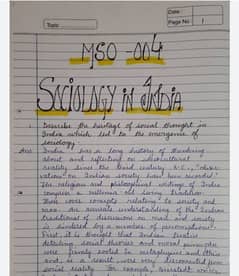 Date :
Topic
Page No 1
MSO - 004
SOCIOLOGY IN INDIA
1. Describe the heritage of social thought in
India which led to the emergence of
sociology.
Ans India has a long history of thinking
about and reflecting on sociocultural
reality since the 2nd century B.C.,
on Indian society have been recorded.
The religion and philosophical writing of India
comprise a millennia old living tradition.
Their core concepts relating to society and
man. An accurate understanding of the Indian
traditions of discussion on man and society
is hindered by a number of preconceptions.
First it is thought that Indian thinkers
detaching social theories and moral principle
were firmly rooted in metaphysics and ethics
and as a result were very
social reality. For example, Sanskrit works